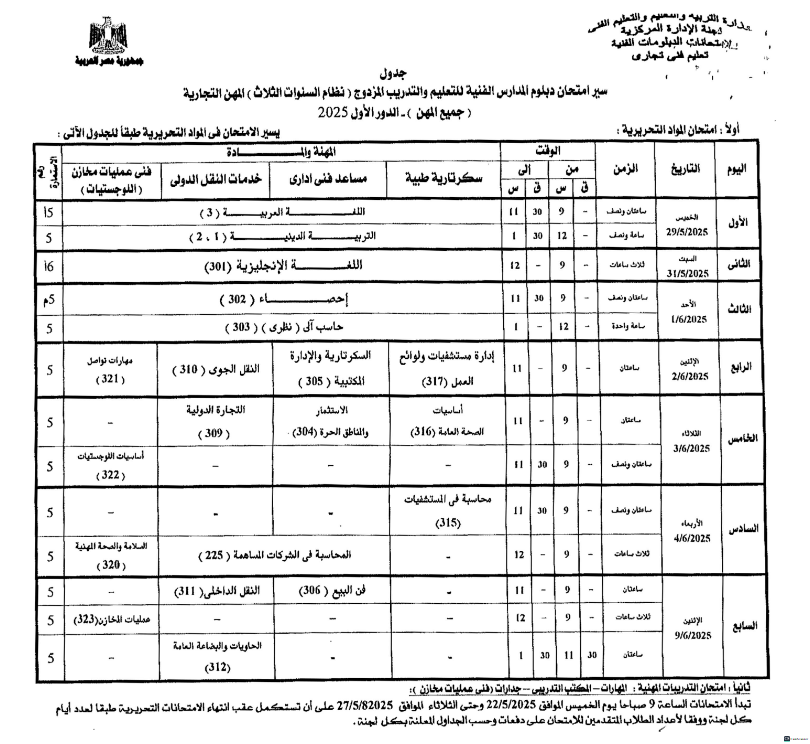 وزارة التربية والتعليم والتعليم الفنى
لجنة الإدارة المركزية
لإمتحانات الدبلومات الفنية
تعليم فنى تجارى
جمهورية مصر العربية
جدول
سير امتحان دبلوم المدارس الفنية للتعليم والتدريب المزدوج ( نظام السنوات الثلاث ) المهن التجارية
( جميع المهن ) - الدور الأول 2025
أولاً : امتحان المواد التحريرية : يسير الامتحان فى المواد التحريرية طبقاً للجدول الآتى :
اليوم التاريخ الزمن الوقت المهنة والمـــادة رقم الاستمارة
من إلى سكرتارية طبية مساعد فنى ادارى خدمات النقل الدولى فنى عمليات مخازن (اللوجستيات)
ق س ق س
الأول الخميس 29/5/2025 ساعتان ونصف - 9 30 11 اللغـــة العربيـــة ( 3 ) 15
ساعة ونصف - 12 30 1 التربيـــة الدينيـــة ( 1 ، 2 ) 5
الثانى السبت 31/5/2025 ثلاث ساعات - 9 - 12 اللغـــة الإنجليزية (301) 16
الثالث الأحد 1/6/2025 ساعتان ونصف - 9 30 11 إحصـــــاء ( 302 ) 5م
ساعة واحدة - 12 - 1 حاسب آلى ( نظرى ) ( 303 ) 5
الرابع الإثنين 2/6/2025 ساعتان - 9 - 11 إدارة مستشفيات ولوائح العمل (317) السكرتارية والإدارة المكتبية ( 305 ) النقل الجوى ( 310 ) مهارات تواصل ( 321 ) 5
الخامس الثلاثاء 3/6/2025 ساعتان - 9 - 11 أساسيات الصحة العامة (316) الاستثمار والمناطق الحرة (304) التجارة الدولية ( 309 ) - 5
ساعتان ونصف - 9 30 11 - - - أساسيات اللوجستيات ( 322 ) 5
السادس الأربعاء 4/6/2025 ساعتان ونصف - 9 30 11 محاسبة فى المستشفيات (315) - - - 5
ثلاث ساعات - 9 - 12 - المحاسبة فى الشركات المساهمة ( 225 ) السلامة والصحة المهنية ( 320 ) 5
السابع الإثنين 9/6/2025 ساعتان - 9 - 11 - فن البيع ( 306 ) النقل الداخلى ( 311 ) - 5
ثلاث ساعات - 9 - 12 - - - عمليات المخازن (323) 5
ساعتان 30 11 30 1 - - الحاويات والبضاعة العامة (312) - 5
ثانياً : امتحان التدريبات المهنية : المهارات - المكتب التدريبى - جدارات (فنى عمليات مخازن ) :
تبدأ الامتحانات الساعة 9 صباحا يوم الخميس الموافق 22/5/2025 وحتى الثلاثاء الموافق 27/5/82025 على أن تستكمل عقب انتهاء الامتحانات التحريرية طبقا لعدد أيام
كل لجنة ووفقا لأعداد الطلاب المتقدمين للامتحان على دفعات وحسب الجداول المعلنة بكل لجنة .